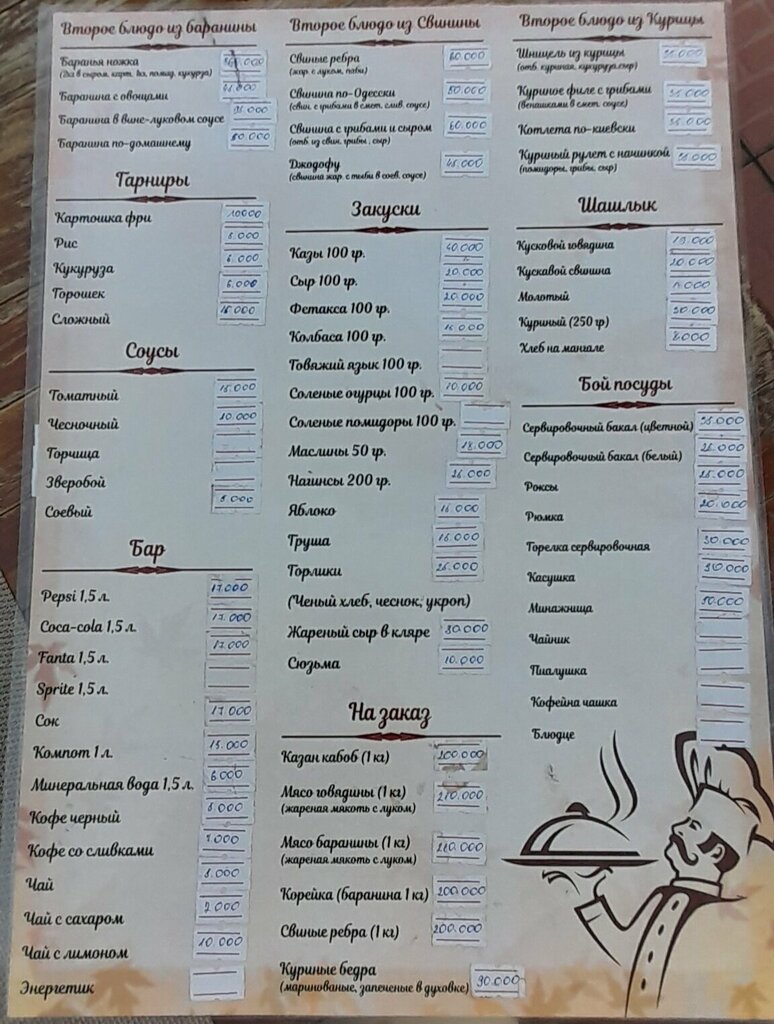 Второе блюдо из баранины
Баранья ножка
(Два в сыром, карт. два, помид, кукурза)
Баранина с овощами
Баранина в вине-луковом соусе
Баранина по-домашнему 80.000
Гарниры
Картошка фри 10000
Рис 5.000
Кукуруза 6.000
Горошек 6.000
Сложный 15.000
Соусы
Томатный 15.000
Чесночный 10.000
Горчица
Зверобой
Соевый 5.000
Бар
Pepsi 1,5 л. 17.000
Coca-cola 1,5 л. 17.000
Fanta 1,5 л. 17.000
Sprite 1,5 л.
Сок 17.000
Компот 1 л. 15.000
Минеральная вода 1,5 л. 6000
Кофе черный 5.000
Кофе со сливками 7.000
Чай
Чай с сахаром 2000
Чай с лимоном 10.000
Энергетик
Второе блюдо из Свинины
Свиные ребра 60.000
(жар. с луком, паби)
Свинина по-Одесски 50.000
(свин. с грибами в смет. слив. соусе)
Свинина с грибами и сыром 60.000
(отб. из свин. грибы , сыр)
Джодофу 45.000
(свинина жар. с тыби в соев. соусе)
Закуски
Казы 100 гр. 40.000
Сыр 100 гр. 20.000
Фетакса 100 гр. 20.000
Колбаса 100 гр. 15.000
Говяжий язык 100 гр.
Соленые огурцы 100 гр. 10.000
Соленые помидоры 100 гр.
Маслины 50 гр. 18.000
Нагинсы 200 гр. 25.000
Яблоко 15.000
Груша 15.000
Горлики 25.000
(Ченый хлеб, чеснок, укроп)
Жареный сыр в кляре 30.000
Сюзьма 10.000
На заказ
Казан кабоб (1 кг) 200.000
Мясо говядины (1 кг) 210.000
(жареная мякоть с луком)
Мясо баранины (1 кг) 210.000
(жареная мякоть с луком)
Корейка (баранина 1 кг) 200.000
Свиные ребра (1 кг) 200.000
Куриные бедра
(маринованые, запеченые в духовке) 90.000
Второе блюдо из Курицы
Шницель из курицы 35.000
(отб. куриная, кукуруза,сыр)
Куриное филе с грибами 35.000
(венашками в смет. соусе)
Котлета по-киевски 35.000
Куриный рулет с начинкой 35.000
(помидоры, грибы, сыр)
Шашлык
Кусковой говядина 19.000
Кускавой свинина 20.000
Молотый
Куриный (250 гр) 30.000
Хлеб на мангале 8000
Бой посуды
Сервировочный бакал (цветной) 35.000
Сервировочный бакал (белый) 25.000
Роксы 25.000
Рюмка 20.000
Торелка сервировочная 30.000
Касушка 30.000
Минажница 50.000
Чайник
Пиалушка
Кофейна чашка
Блюдце